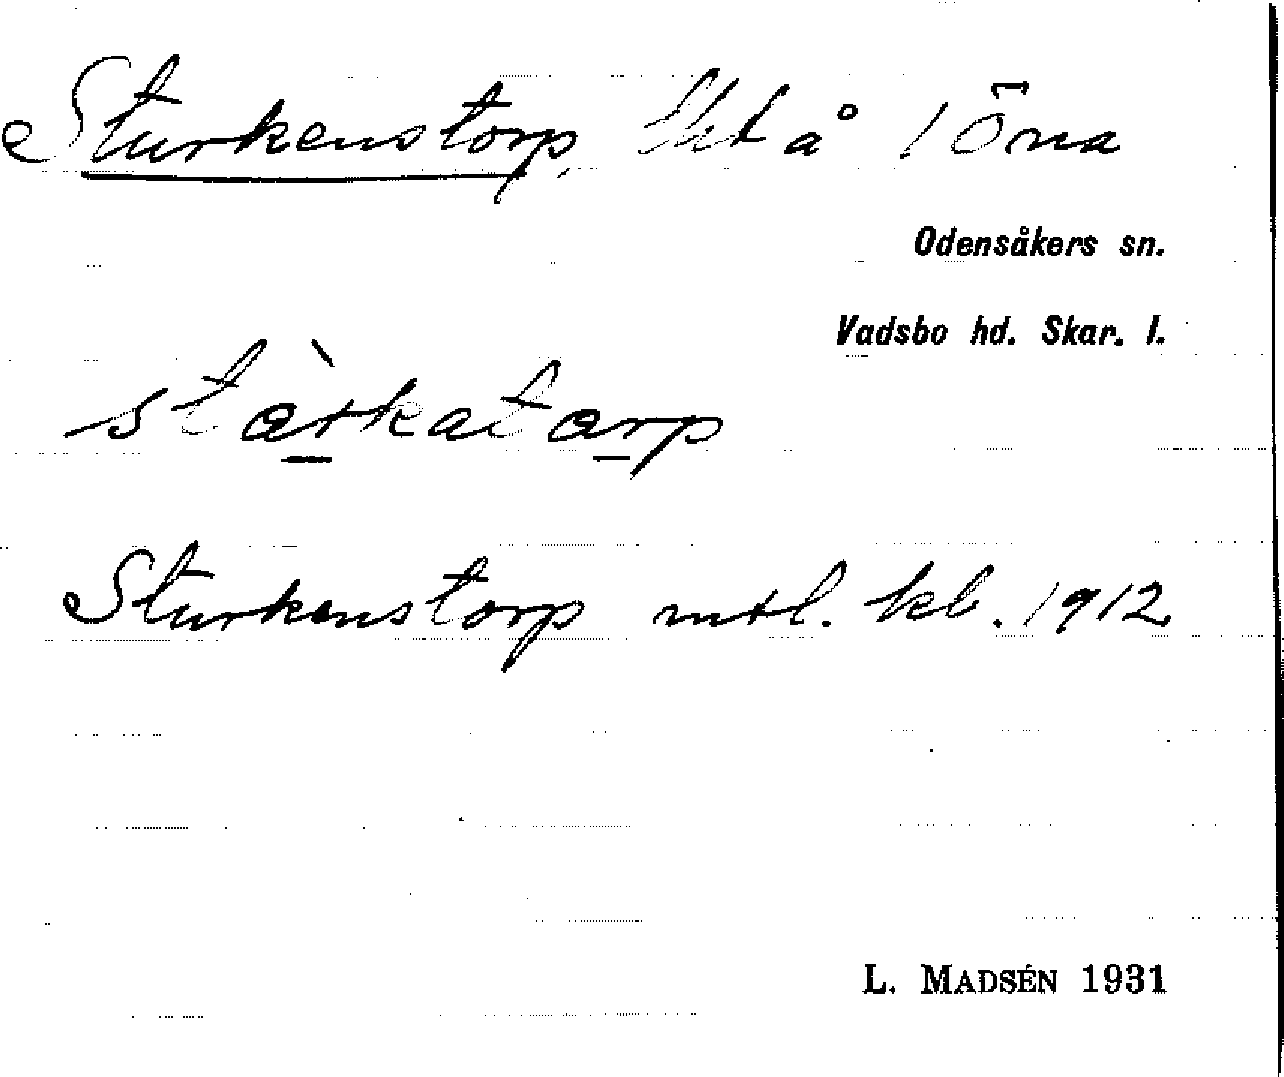 Sturkenstorp, tkt å 1 Öna
Odensåkers sn.
Vadsbo hd. Skar. l.
stàrkatarp
Sturkenstorp mtl. kl. 1912
L. MADSÉN 1931